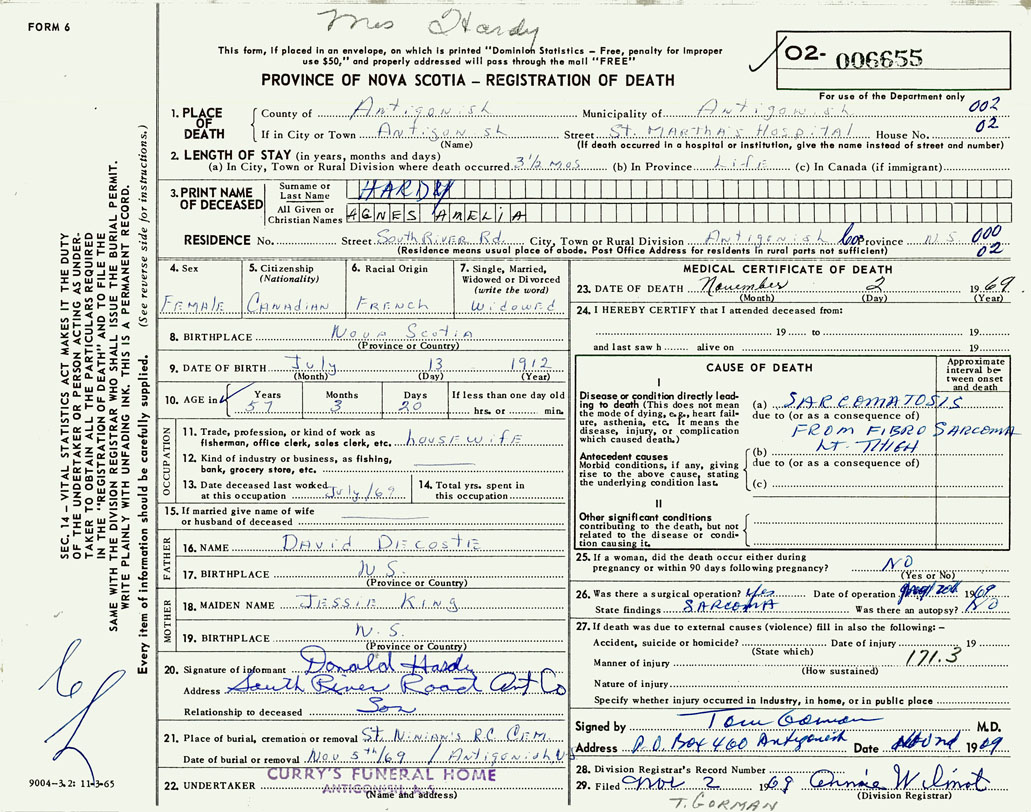 FORM 6
Mrs Hardy
This form, if placed in an envelope, on which is printed "Dominion Statistics – Free, penalty for improper
use $50," and properly addressed will pass through the mail "FREE"
PROVINCE OF NOVA SCOTIA – REGISTRATION OF DEATH
02- 006655
For use of the Department only
002
02
1. PLACE OF DEATH
County of Antigonish Municipality of Antigonish
If in City or Town Antigonish Street St. Martha's Hospital House No.
(Name) (If death occurred in a hospital or institution, give the name instead of street and number)
2. LENGTH OF STAY (in years, months and days)
(a) In City, Town or Rural Division where death occurred 3½ mos (b) In Province Life (c) In Canada (if immigrant)
3. PRINT NAME OF DECEASED
Surname or Last Name HARDY
All Given or Christian Names AGNES AMELIA
RESIDENCE No. Street South River Rd. City, Town or Rural Division Antigonish Co Province N S 000
(Residence means usual place of abode. Post Office Address for residents in rural parts not sufficient) 02
4. Sex
Female
5. Citizenship
(Nationality)
Canadian
6. Racial Origin
French
7. Single, Married,
Widowed or Divorced
(write the word)
Widowed
8. BIRTHPLACE Nova Scotia
(Province or Country)
9. DATE OF BIRTH July 13 1912
(Month) (Day) (Year)
10. AGE in Years Months Days If less than one day old
57 3 20 hrs. or min.
OCCUPATION
11. Trade, profession, or kind of work as
fisherman, office clerk, sales clerk, etc. housewife
12. Kind of industry or business, as fishing,
bank, grocery store, etc.
13. Date deceased last worked
at this occupation July/69
14. Total yrs. spent in
this occupation
15. If married give name of wife
or husband of deceased
FATHER
16. NAME David Decoste
17. BIRTHPLACE N.S.
(Province or Country)
MOTHER
18. MAIDEN NAME Jessie King
19. BIRTHPLACE N.S.
(Province or Country)
20. Signature of informant Donald Hardy
Address South River Road Ant Co
Relationship to deceased Son
21. Place of burial, cremation or removal St. Ninian's R.C. Cem.
Date of burial or removal Nov 5th/69 / Antigonish
22. UNDERTAKER CURRY'S FUNERAL HOME
ANTIGONISH, N.S.
(Name and address)
MEDICAL CERTIFICATE OF DEATH
23. DATE OF DEATH November 2 1969
(Month) (Day) (Year)
24. I HEREBY CERTIFY that I attended deceased from:
19 to 19
and last saw h alive on 19
CAUSE OF DEATH
Approximate
interval be-
tween onset
and death
I
Disease or condition directly lead-
ing to death (This does not mean
the mode of dying, e.g., heart fail-
ure, asthenia, etc. It means the
disease, injury, or complication
which caused death.)
(a) SARCOMATOSIS
due to (or as a consequence of)
FROM FIBRO SARCOMA
(b) LT. THIGH
due to (or as a consequence of)
(c)
Antecedent causes
Morbid conditions, if any, giving
rise to the above cause, stating
the underlying condition last.
II
Other significant conditions
contributing to the death, but not
related to the disease or condi-
tion causing it.
25. If a woman, did the death occur either during
pregnancy or within 90 days following pregnancy? NO
(Yes or No)
26. Was there a surgical operation? Yes Date of operation 1969
State findings SARCOMA Was there an autopsy? NO
27. If death was due to external causes (violence) fill in also the following: –
Accident, suicide or homicide? Date of injury 19
(State which)
Manner of injury 171.3
(How sustained)
Nature of injury
Specify whether injury occurred in Industry, in home, or in public place
Signed by Tom Gorman M.D.
Address P.O. Box 460 Antigonish Date 1969
28. Division Registrar's Record Number
29. Filed Nov 2 1969 Annie Wilmot
(Division Registrar)
T. GORMAN
SEC. 14 – VITAL STATISTICS ACT MAKES IT THE DUTY
OF THE UNDERTAKER OR PERSON ACTING AS UNDER-
TAKER TO OBTAIN ALL THE PARTICULARS REQUIRED
IN THE "REGISTRATION OF DEATH" AND TO FILE THE
SAME WITH THE DIVISION REGISTRAR WHO SHALL ISSUE THE BURIAL PERMIT.
WRITE PLAINLY WITH UNFADING INK. THIS IS A PERMANENT RECORD.
Every item of information should be carefully supplied. (See reverse side for instructions.)
9004-3.2: 11-3-65